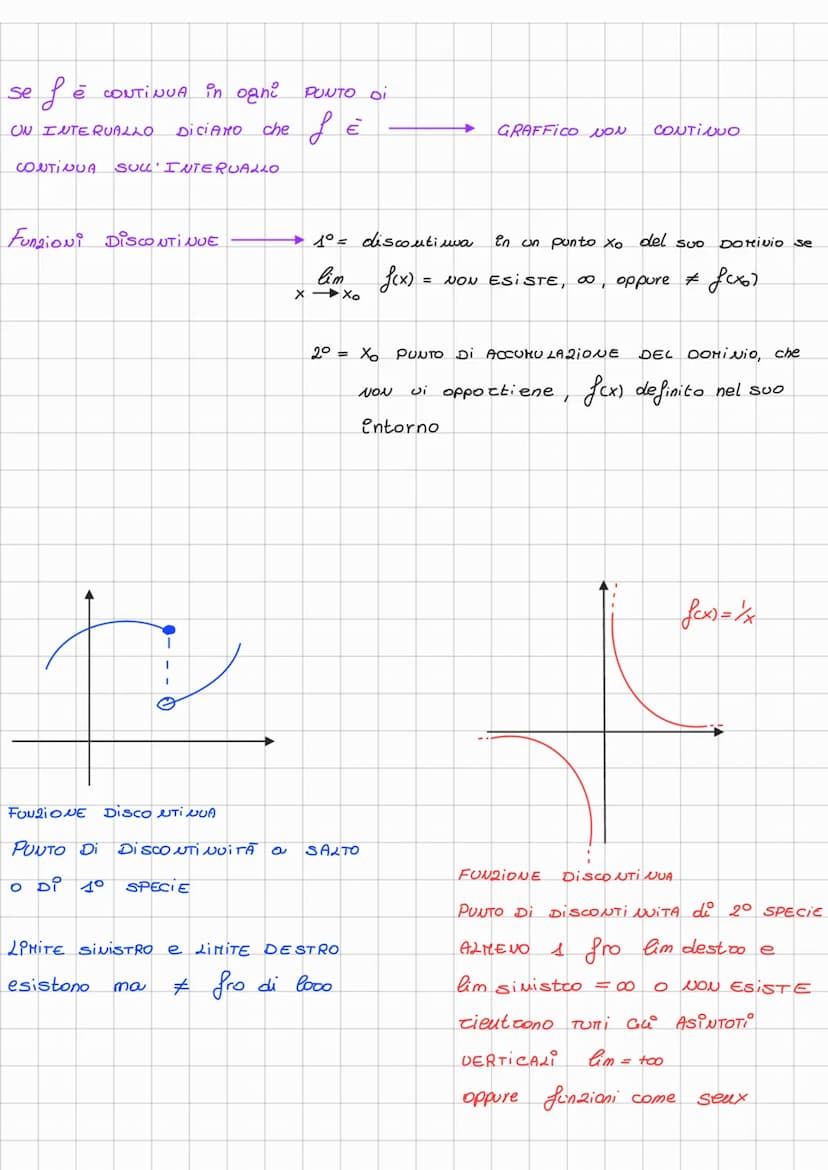 se f è CONTINUA in ogni PUNTO DI
UN INTERVALLO DICIAMO che f È → GRAFFICO NON CONTINUO
CONTINUA SULL'INTERVALLO
Funzioni DISCONTINUE → 1° = discontinua in un punto x₀ del suo DOMINIO se
lim f(x) = NON ESISTE, ∞, oppure ≠ f(x₀)
x → x₀
2° = x₀ PUNTO DI ACCUMULAZIONE DEL DOMINIO, che
NON vi appartiene, f(x) definito nel suo
intorno
f(x) = 1/x
FUNZIONE DISCONTINUA
PUNTO DI DISCONTINUITÀ a SALTO
O DI 1° SPECIE
LIMITE SINISTRO e LIMITE DESTRO
esistono ma ≠ fra di loro
FUNZIONE DISCONTINUA
PUNTO DI DISCONTINUITA di 2° SPECIE
ALMENO 1 fra lim destro e
lim sinistro = ∞ O NON ESISTE
rientrano TUTTI GLI ASINTOTI
VERTICALI lim = +∞
oppure funzioni come senx